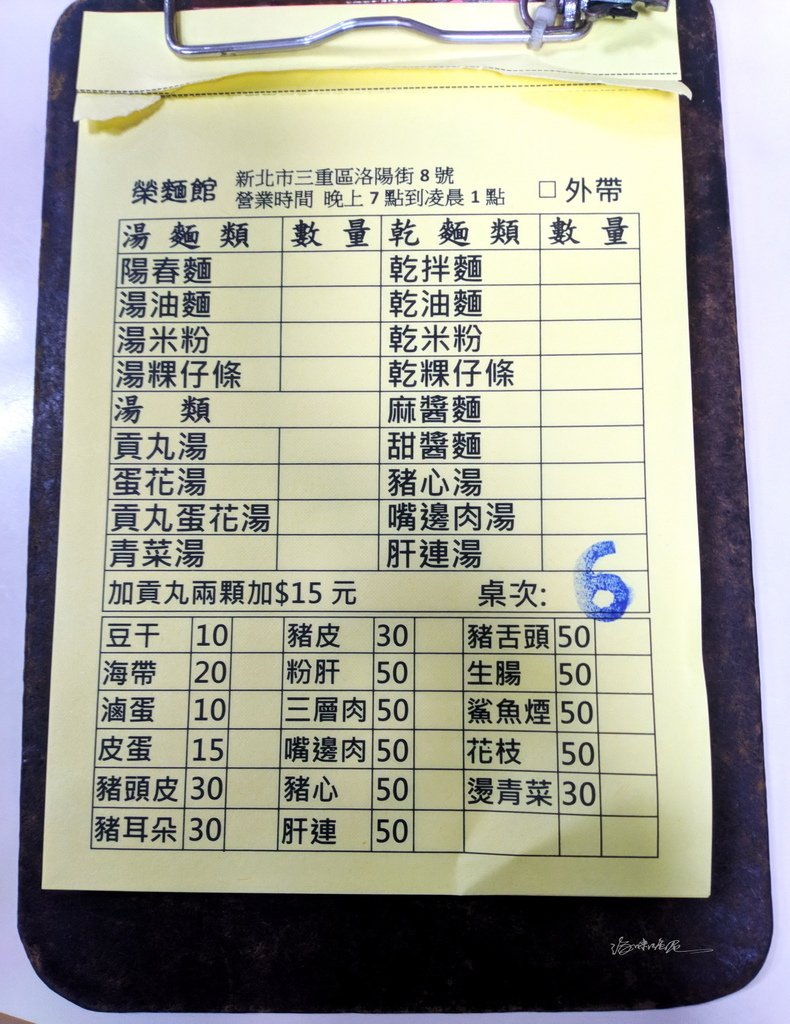 榮麵館 新北市三重區洛陽街 8 號
營業時間 晚上 7 點到凌晨 1 點 □ 外帶
湯麵類 數量 乾麵類 數量
陽春麵 乾拌麵
湯油麵 乾油麵
湯米粉 乾米粉
湯粿仔條 乾粿仔條
湯類 麻醬麵
貢丸湯 甜醬麵
蛋花湯 豬心湯
貢丸蛋花湯 嘴邊肉湯
青菜湯 肝連湯
加貢丸兩顆加$15 元 桌次: 6
豆干 10 豬皮 30 豬舌頭 50
海帶 20 粉肝 50 生腸 50
滷蛋 10 三層肉 50 鯊魚煙 50
皮蛋 15 嘴邊肉 50 花枝 50
豬頭皮 30 豬心 50 燙青菜 30
豬耳朵 30 肝連 50